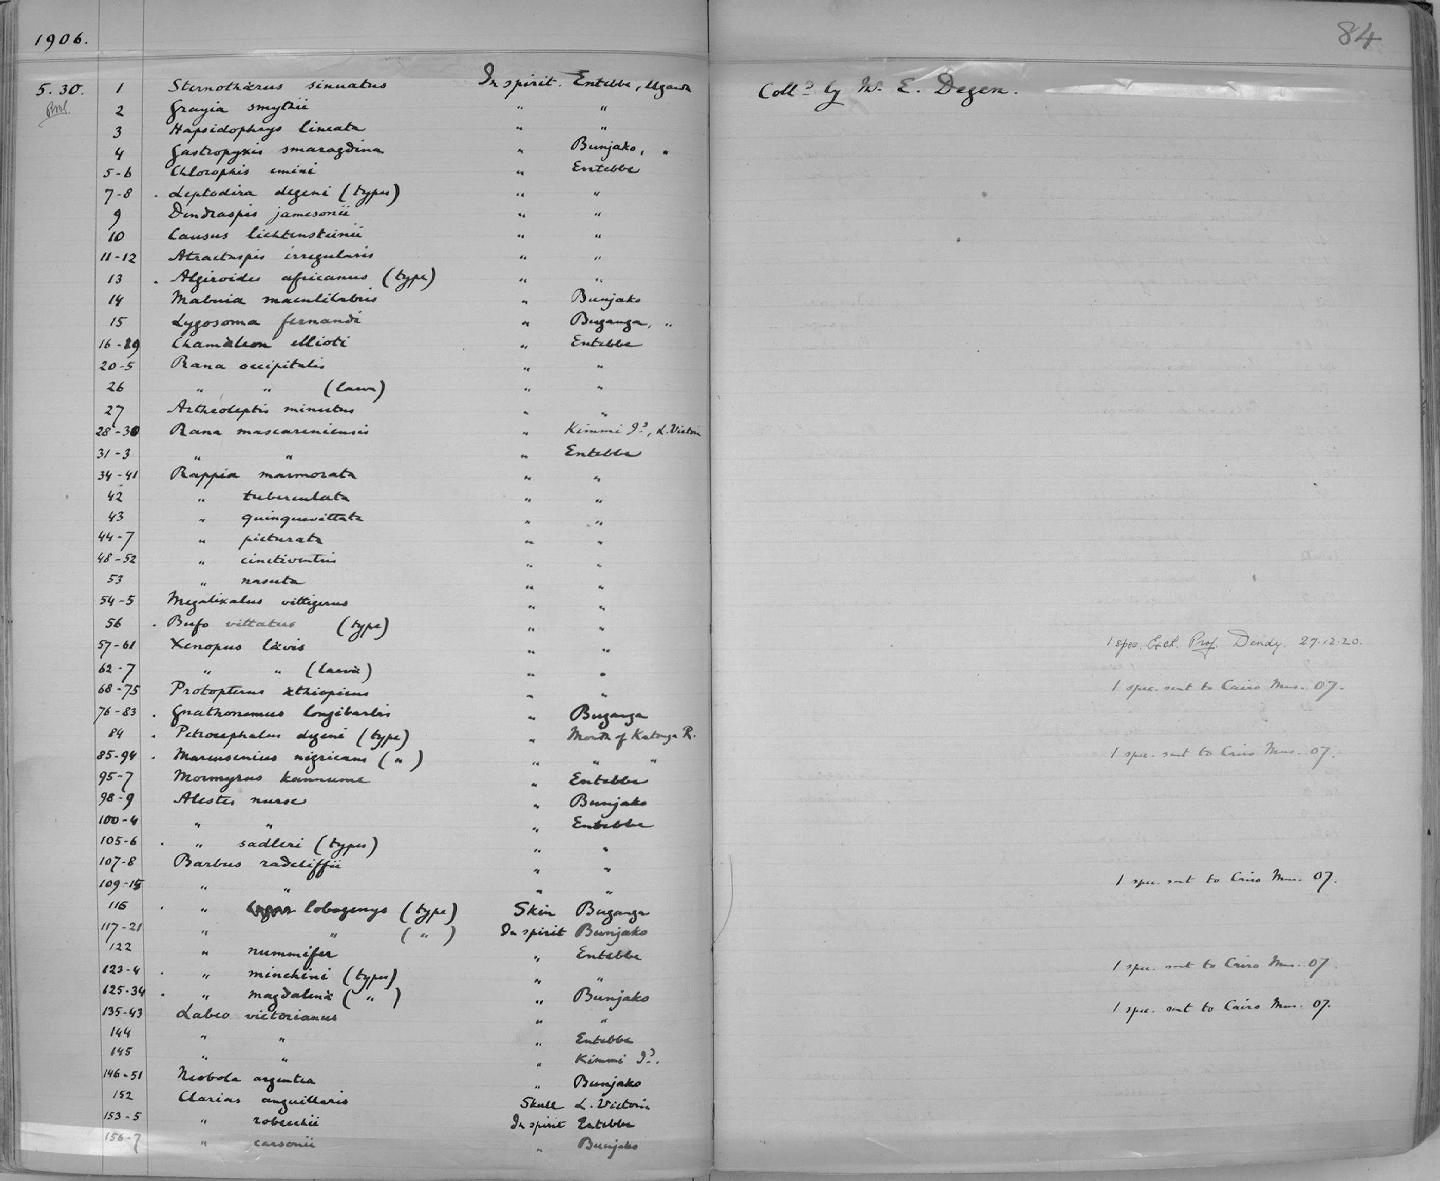 1906.
84
5.30. 1 Sternothærus sinuatus In spirit. Entebbe, Uganda Coll.d by Mr. E. Degen.
2 Grayia smythii " "
3 Hapsidophrys lineata " "
4 Gastropyxis smaragdina " Bunjako, "
5-6 Chlorophis emini " Entebbe
7-8 . Leptodira degeni (types) " "
9 Dendraspis jamesonii " "
10 Causus lichtensteinii " "
11-12 Atractaspis irregularis " "
13 . Algiroides africanus (type) " "
14 Mabuia maculilabris " Bunjako
15 Lygosoma fernandi " Buganga, "
16-19 Chamæleon ellioti " Entebbe
20-5 Rana occipitalis " "
26 " " (larva) " "
27 Arthroleptis minutus " "
28-30 Rana mascareniensis " Kimmi I?, L. Victoria
31-3 " " " Entebbe
34-41 Rappia marmorata " "
42 " tuberculata " "
43 " quinquevittata " "
44-7 " picturata " "
48-52 " cinctiventris " "
53 " nasuta " "
54-5 Megalixalus vittigerus " "
56 . Bufo vittatus (type) " "
57-61 Xenopus lævis " " 1 spec. Exch. Prof. Dendy. 27.12.20.
62-7 " " (larvæ) " "
68-75 Protopterus æthiopicus " " 1 spec. sent to Cairo Mus. 07.
76-83 . Gnathonemus longibarbis " Buganga
84 . Petrocephalus degeni (type) " Mouth of Katonga R.
85-94 . Marcusenius nigricans (") " " " 1 spec. sent to Cairo Mus. 07.
95-7 Mormyrus kannume " Entebbe
98-9 Alestes nurse " Bunjako
100-4 " " " Entebbe
105-6 . " sadleri (types) " "
107-8 Barbus radcliffii " "
109-15 " " " " 1 spec. sent to Cairo Mus. 07.
116 . " lobogenys (type) Skin Buganga
117-21 " " (") In spirit Bunjako
122 " nummifer " Entebbe
123-4 . " minchini (types) " " 1 spec. sent to Cairo Mus. 07.
125-34 . " magdalenæ (") " Bunjako
135-43 Labeo victorianus " " 1 spec. sent to Cairo Mus. 07.
144 " " " Entebbe
145 " " " Kimmi I?.
146-51 Neobola argentea " Bunjako
152 Clarias anguillaris Skull L. Victoria
153-5 " robecchii In spirit Entebbe
156-7 " carsonii " Bunjako